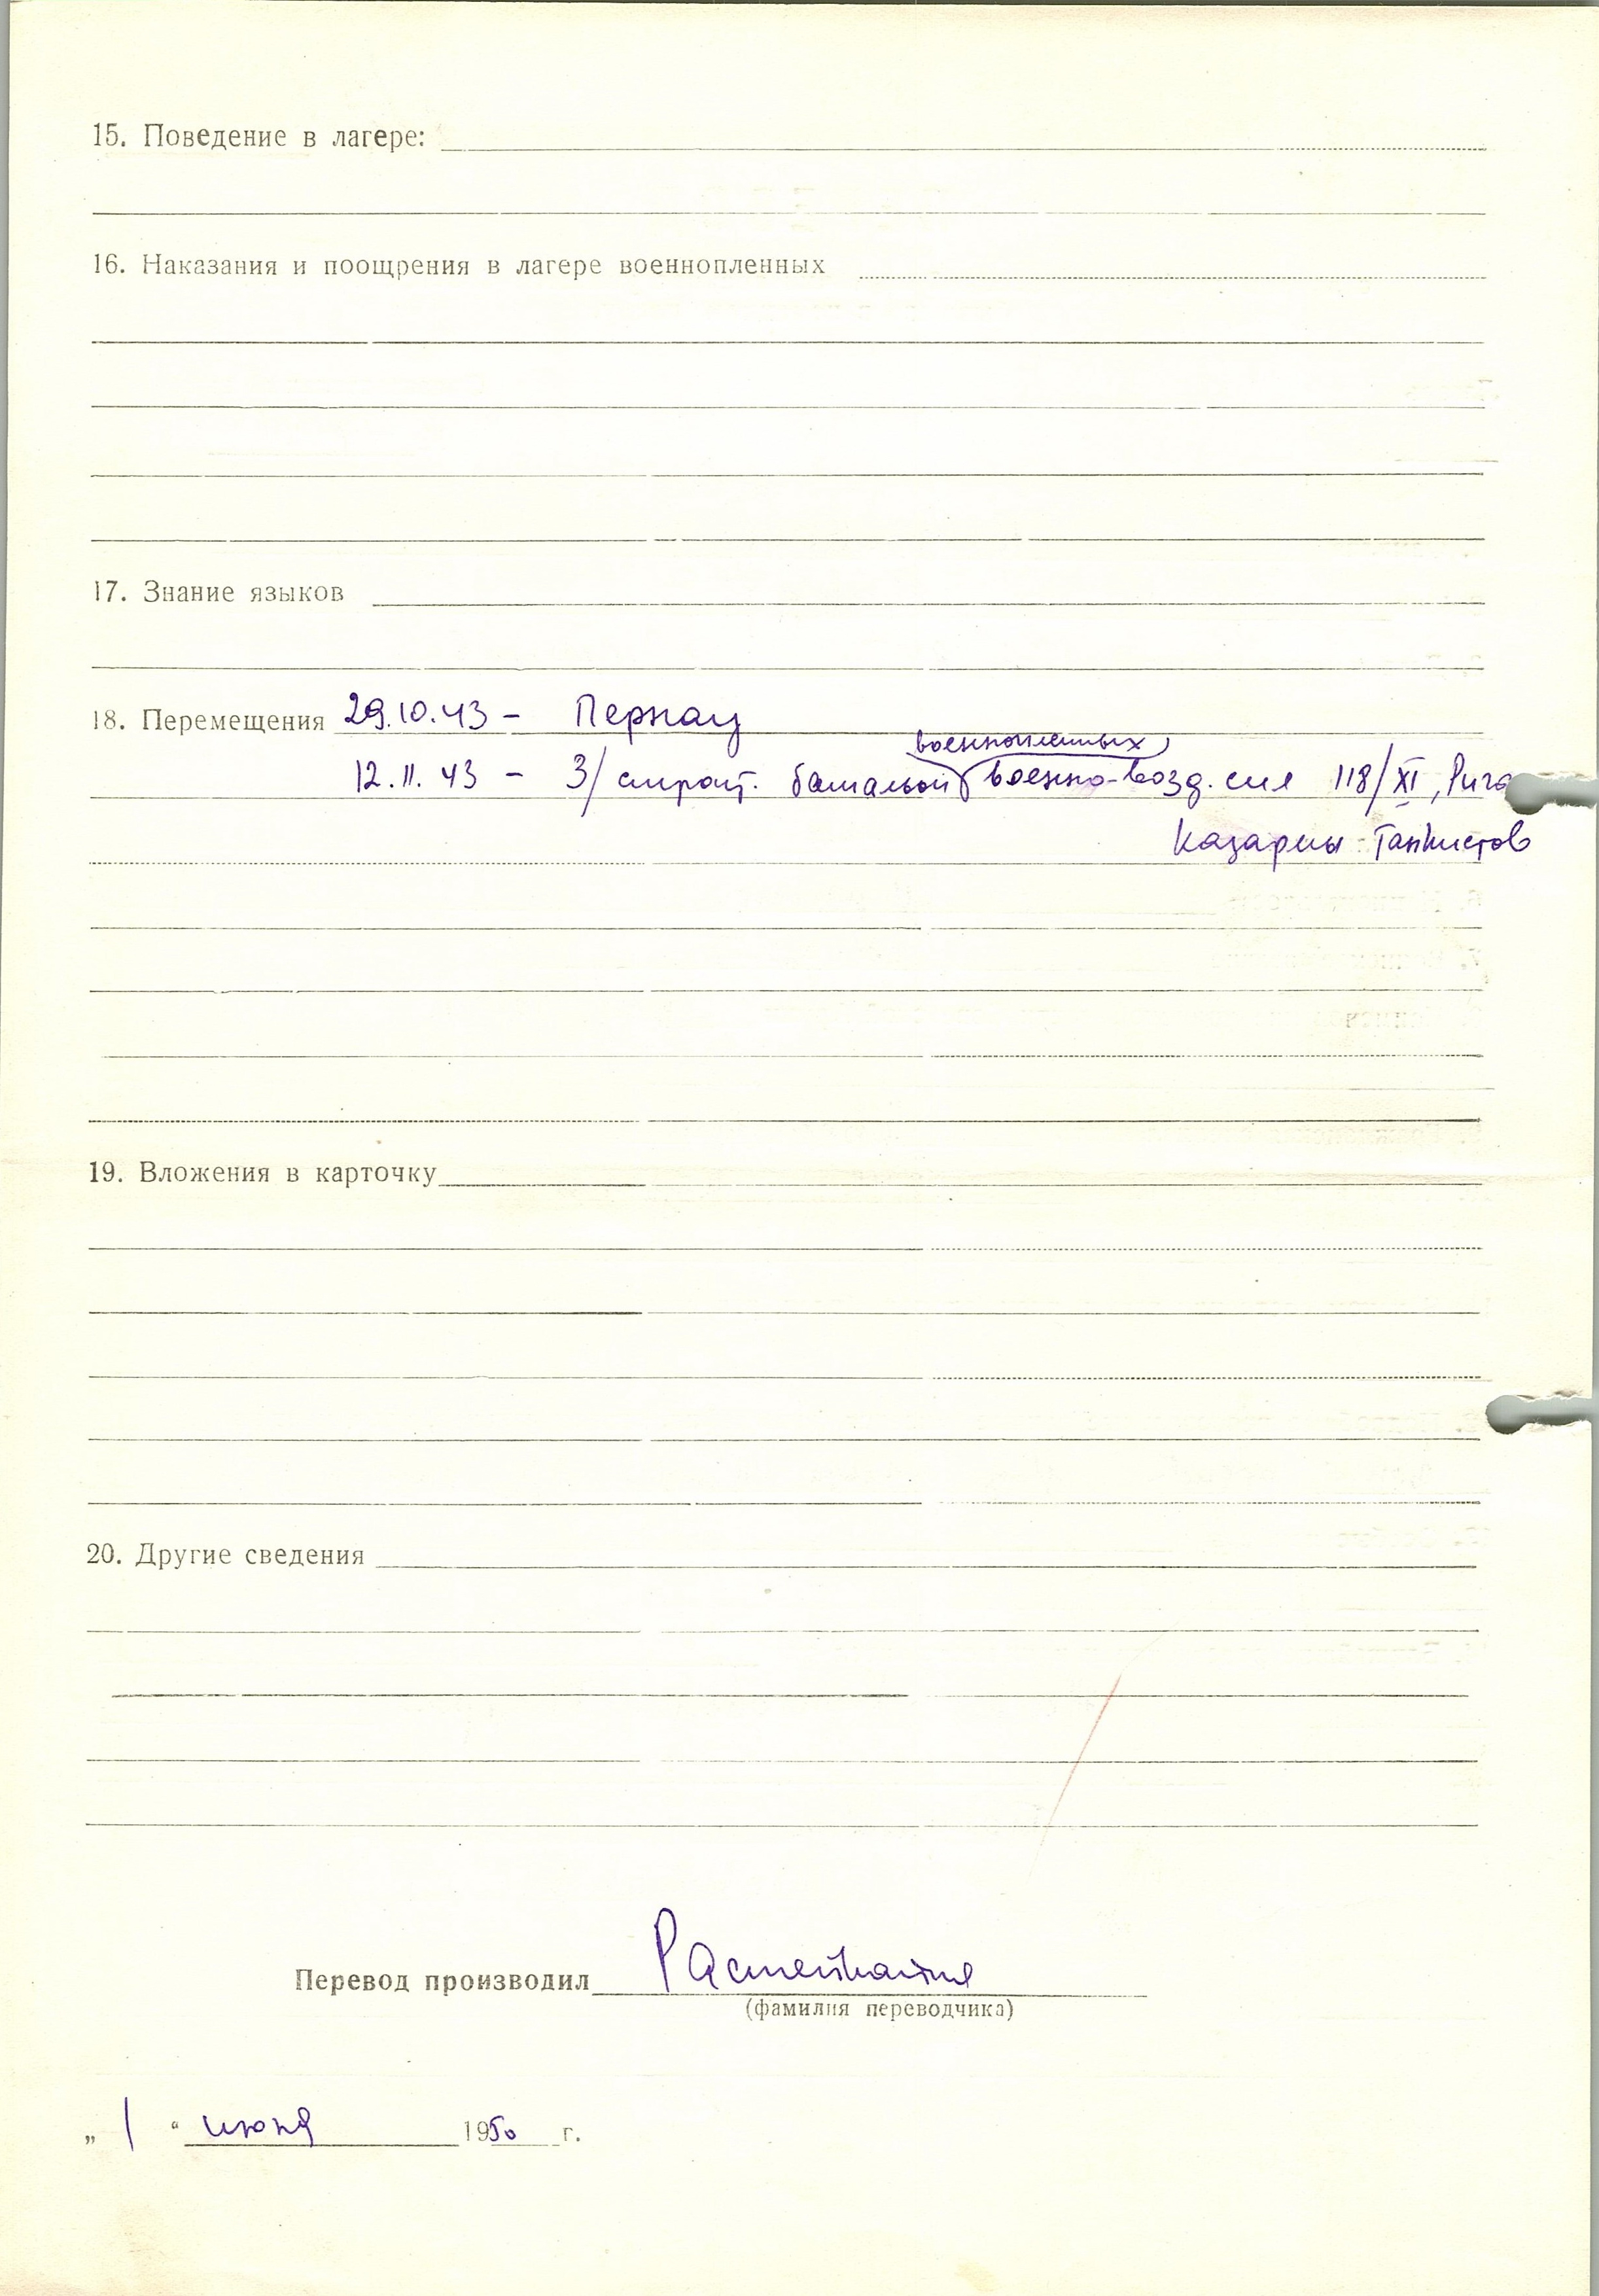 15. Поведение в лагере:
16. Наказания и поощрения в лагере военнопленных
17. Знание языков
18. Перемещения 29.10.43 – Пернау
военнопленных
12.11.43 – 3/ строит. батальон военно-возд. сил 118/XI, Рига
Казармы Танкистов
19. Вложения в карточку
20. Другие сведения
Перевод производил
(фамилия переводчика)
„ 1 “ июня 1950 г.